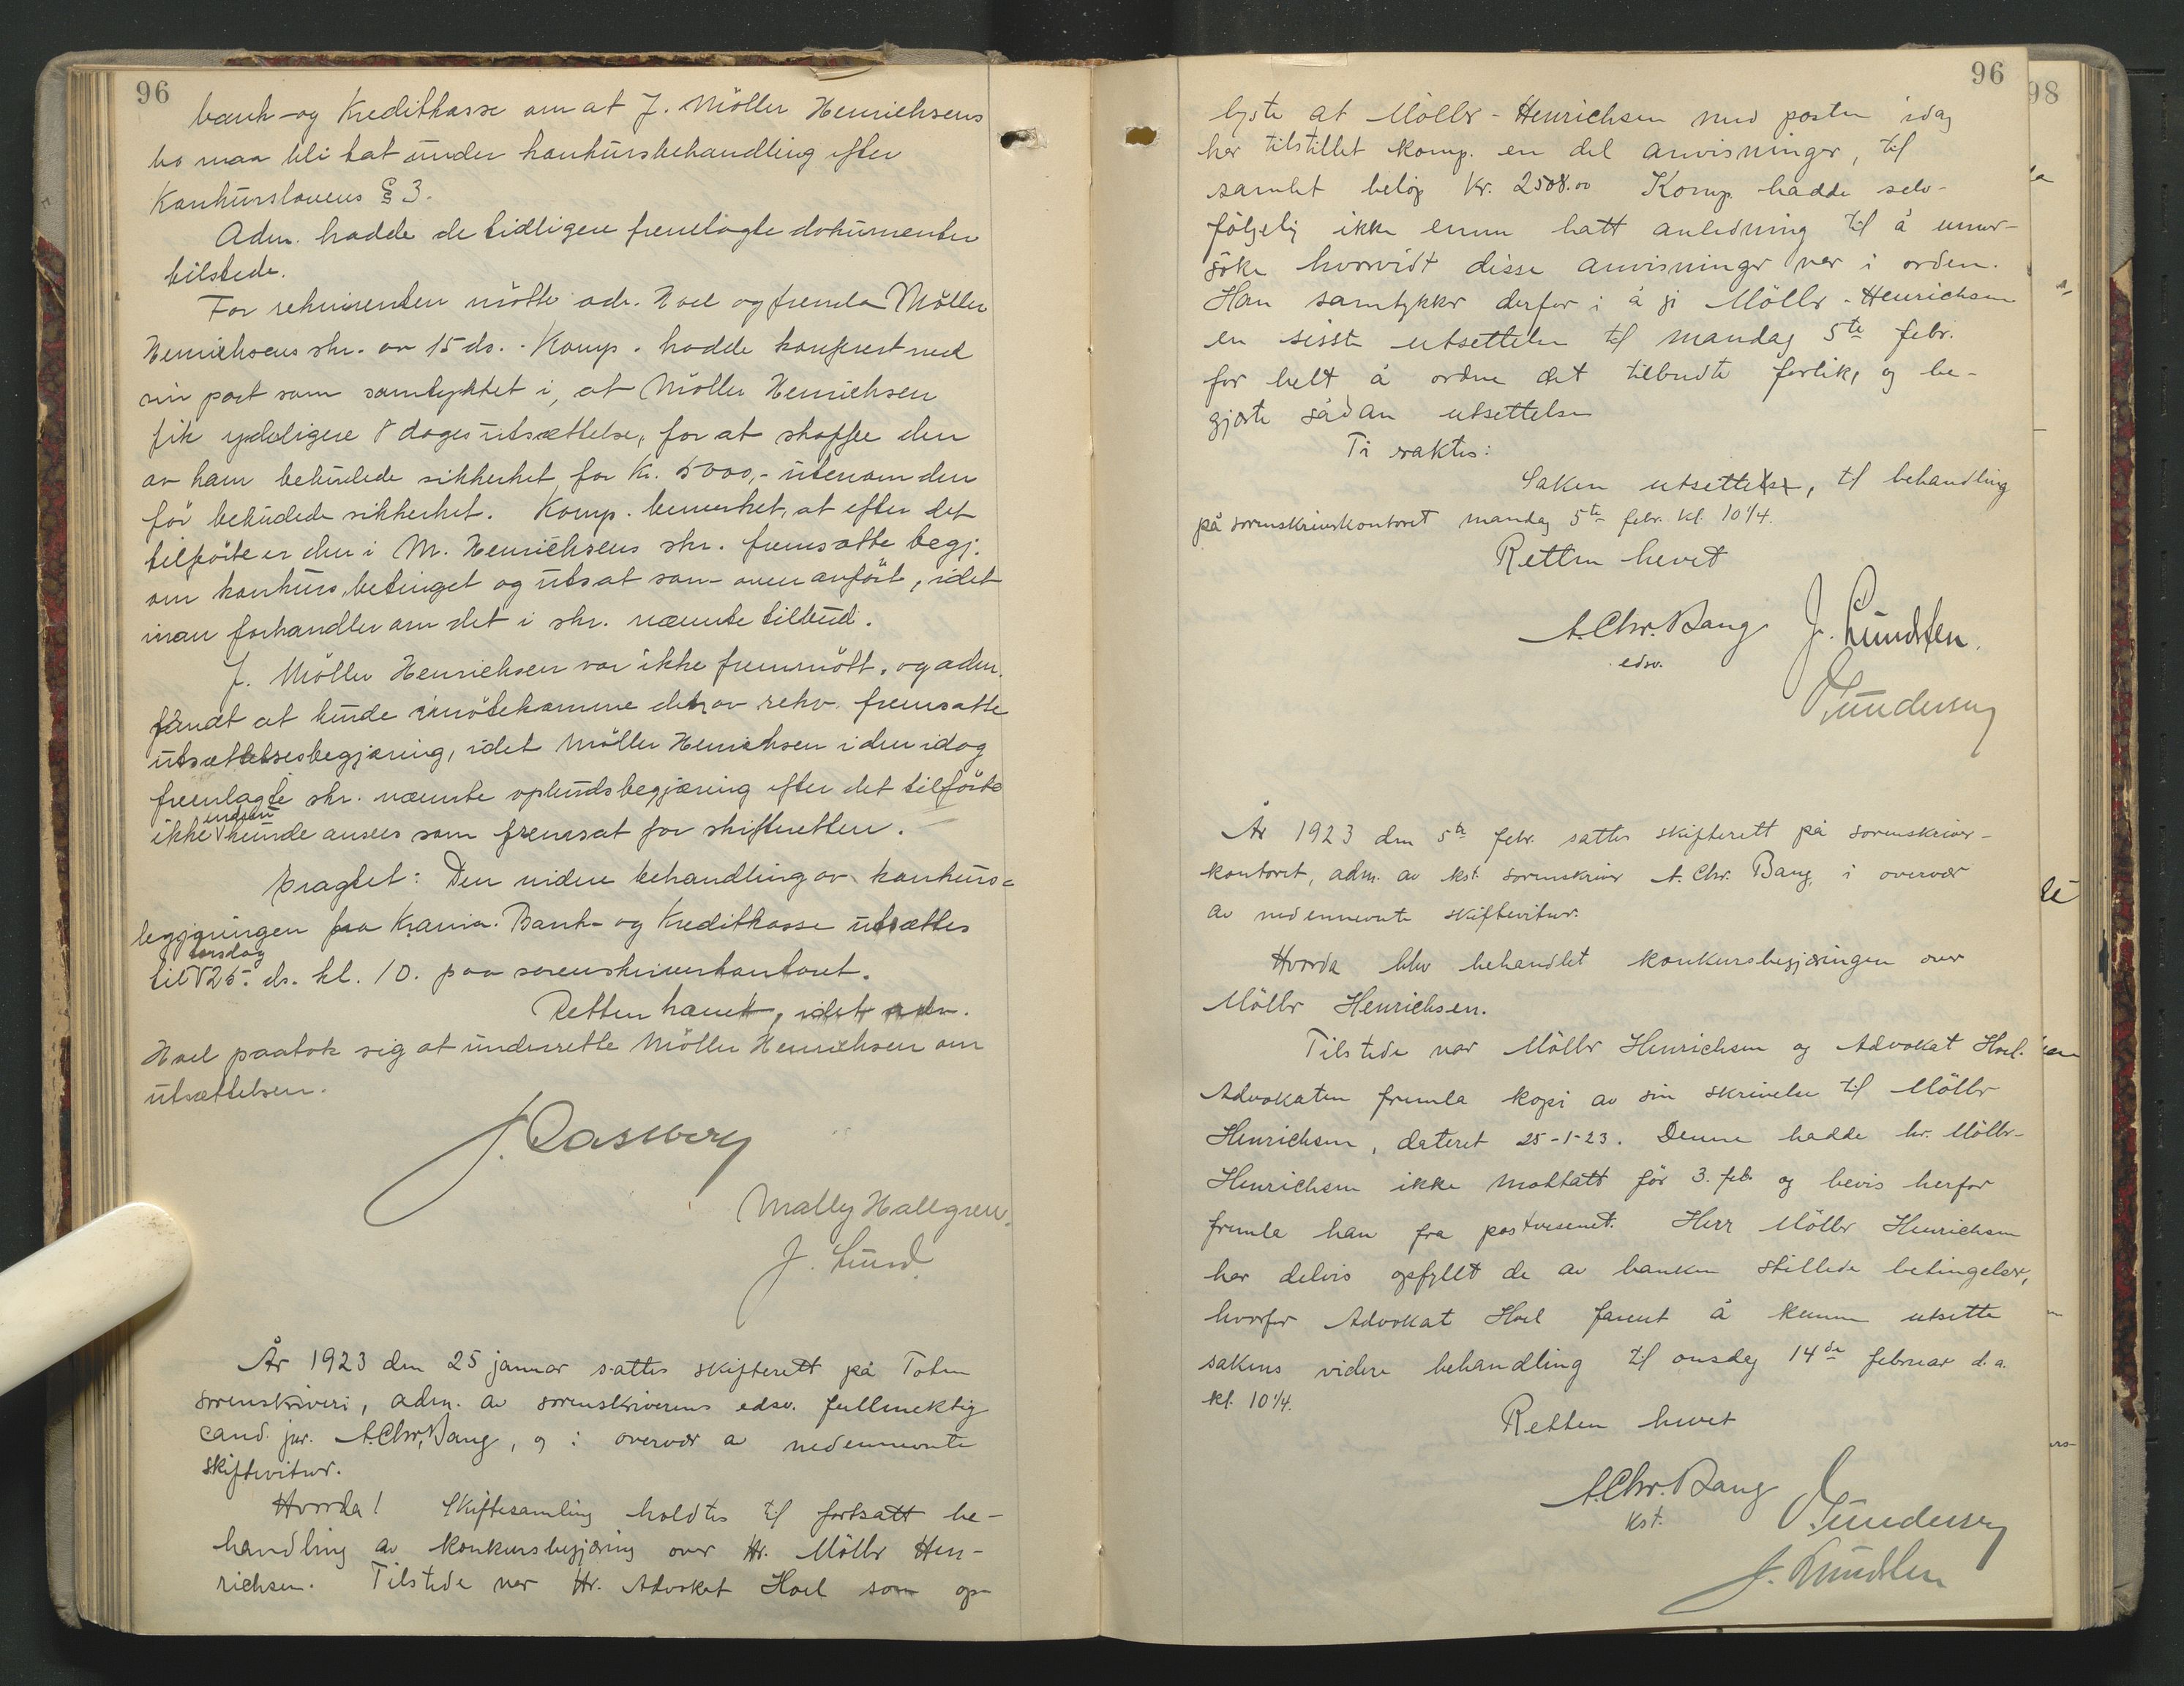 96
bank- og Kreditkasse om at J. Möller Henrichsens
bo maa bli tat under konkursbehandling efter
Konkurslovens § 3.
Adm. hadde de tidligere fremlagte dokumenter
tilstede.
For rekvirenten mötte adv. Hoel og fremla Möller
Henrichsens skr. av 15 ds. - Komp. hadde konferert med
sin part som samtykket i, at Möller Henrichsen
fik yderligere 8 dages utsættelse, for at skaffe den
av ham bebudede sikkerhet for Kr. 5000,- utenom den
för bebudede sikkerhet. Komp. bemerket, at efter det
tilförte er den i M. Henrichsens skr. fremsatte begj.
om konkurs, betinget og utsat som oven anfört, idet
man forhandler om det i skr. nævnte tilbud.
J. Möller Henrichsen var ikke fremmött, og adm.
fandt at kunde imötekomme det av rekv. fremsatte
utsættelsesbegjæring, idet Möller Henrichsen i den idag
fremlagte skr. nævnte opbudsbegjæring efter det tilförte
ikke endnu kunde ansees som fremsat for skifteretten.
Eragtet: Den videre behandling av konkurs=
begjæringen fra Krania. Bank- og Kreditkasse utsættes
til torsdag 25. ds. kl. 10. paa sorenskriverkontoret.
Retten hævet, idet adv.
Hoel paatok sig at underrette Möller Henrichsen om
utsættelsen.
Mally Hallgren.
J. Lund.
År 1923 den 25 januar sattes skifterett på Toten
sorenskriveri, adm. av sorenskriverens edsv. fullmektig
cand. jur. A. Chr. Bang, og i overvær av nedennevnte
skiftevitner.
Hvorda! Skiftesamling holdtes til fortsatt be-
handling av konkursbegjæring over Hr. Möller Hen-
richsen. Tilstede var Hr. Advokat Hoel som op-
96
98
lyste at Möller-Henrichsen med posten idag
har tilstillet komp. en del anvisninger, til
samlet belöp kr. 2508.00 Komp. hadde selv-
fölgelig ikke ennu hatt anledning til å under-
söke hvorvidt disse anvisninger var i orden.
Han samtykker derfor i å gi Möller-Henrichsen
en sisste utsettelse til mandag 5te febr.
for helt å ordne det tilbudte forlik, og be-
gjærte sådan utsettelse
Ti eraktes:
Saken utsettes, til behandling
på sorenskriverkontoret mandag 5te febr. kl. 10 1/4.
Retten hevet
A. Chr. Bang J. Lundsten.
edsv.
År 1923 den 5te febr. sattes skifterett på sorenskriver-
kontoret, adm. av kst. sorenskriver A. Chr. Bang, i overvær
av nedennevnte skiftevitner.
Hvorda blev behandlet konkursbegjæringen over
Möller Henrichsen.
Tilstede var Möller Henrichsen og Advokat Hoel.
Advokaten fremla kopi av sin skrivelse til Möller
Henrichsen, dateret 25-1-23. Denne hadde hr. Möller-
Henrichsen ikke mottatt för 3. feb. og bevis herfor
fremla han fra postvesenet. Herr Möller Henrichsen
har delvis opfyllt de av banken stillede betingelser,
hvorfor Advokat Hoel fannt å kunne utsette
sakens videre behandling til onsdag 14de februar d.a.
kl. 10 1/4.
Retten hevet
A. Chr. Bang
kst.
J. Lundsten